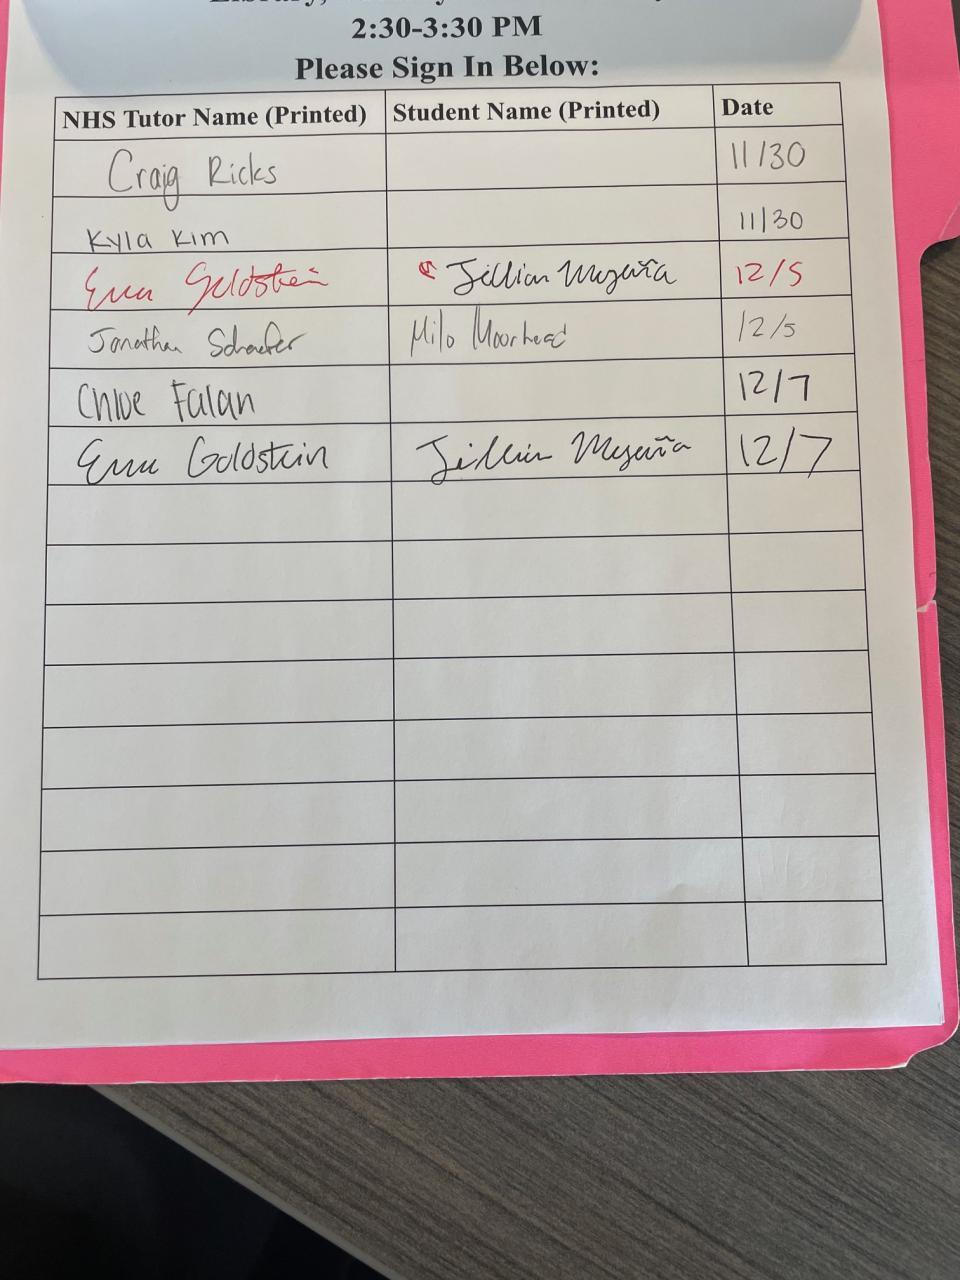 Library,
2:30-3:30 PM
Please Sign In Below:
NHS Tutor Name (Printed) Student Name (Printed) Date
Craig Ricks 11/30
Kyla Kim 11/30
Goldstein Jillian 12/5
Jonathan Schaefer Milo Moorhead 12/5
Chloe Falan 12/7
Goldstein Jillian 12/7